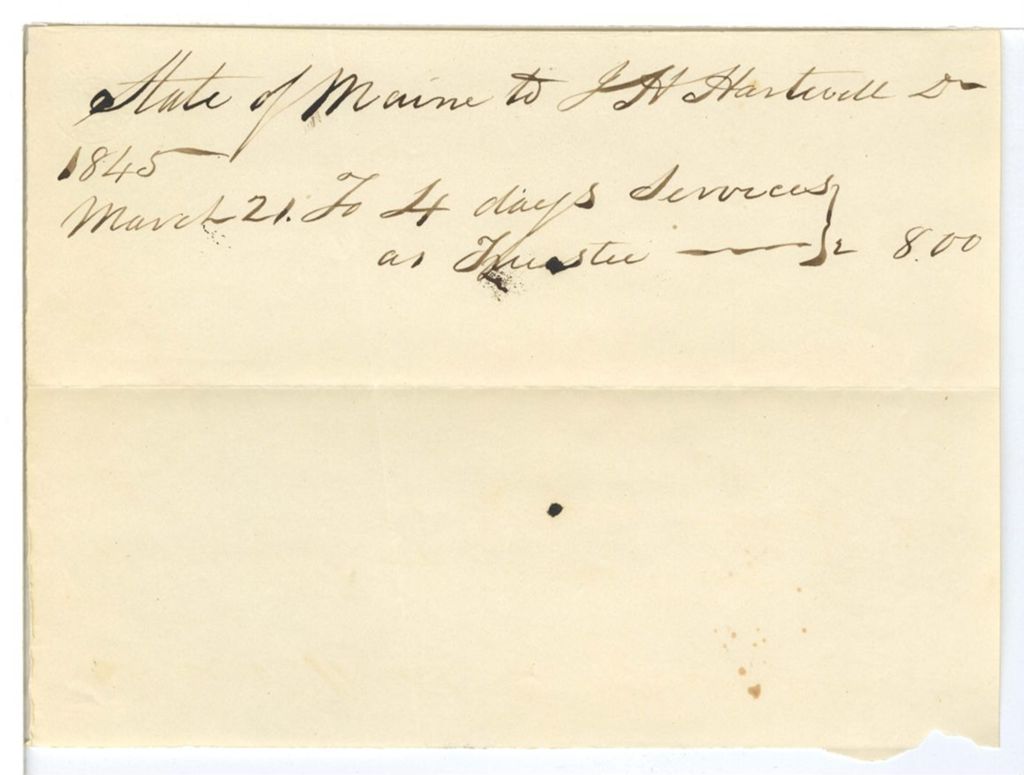 State of Maine to J H Hartwell Dr
1845
March 21. To 4 days Services
as Trustee — } 8.00